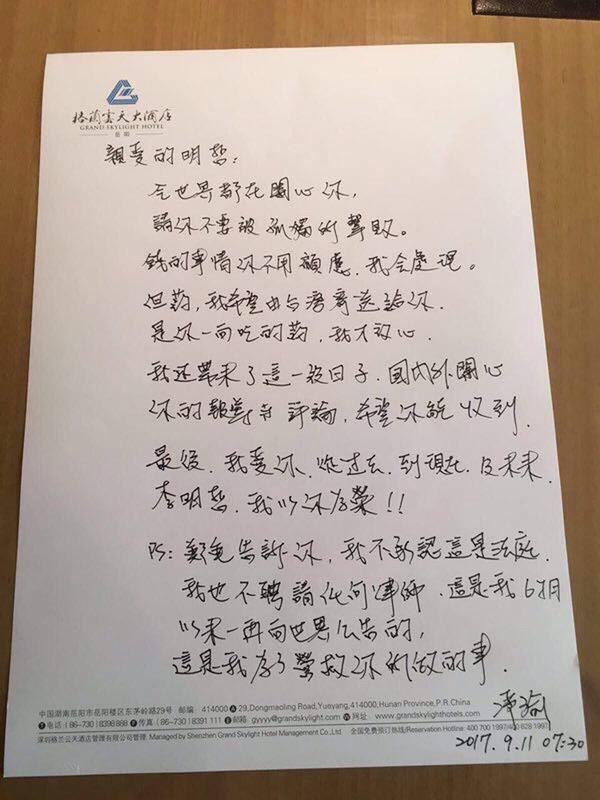 格兰云天大酒店
GRAND SKYLIGHT HOTEL
岳阳
親愛的明哲：
全世界都在關心你，
請你不要被孤獨所擊敗。
錢的事情你不用顧慮，我会處理。
但药，我希望由台湾寄送給你，
是你一向吃的药，我才放心。
我还帶來了這一段日子，國內外關心
你的報導与評論，希望你能收到。
最後，我愛你，從过去，到現在，及未來
李明哲，我以你为榮！！
PS：顺便告訴你，我不承認這是法庭，
我也不聘請任何律師，這是我6个月
以來一再向世界公告的，
這是我为了營救你所做的事。
淨瑜
2017.9.11 07:30
中国湖南岳阳市岳阳楼区东茅岭路29号 邮编：414000 A 29,Dongmaoling Road,Yueyang,414000,Hunan Province,P.R.China
电话：(86-730)8398888 传真：(86-730)8391 111 邮箱：gyyyy@grandskylight.com 网址：www.grandskylighthotels.com
深圳格兰云天酒店管理有限公司管理 Managed by Shenzhen Grand Skylight Hotel Management Co.,Ltd. 全国免费预订热线/Reservation Hotline: 400 700 1997/400 628 1997